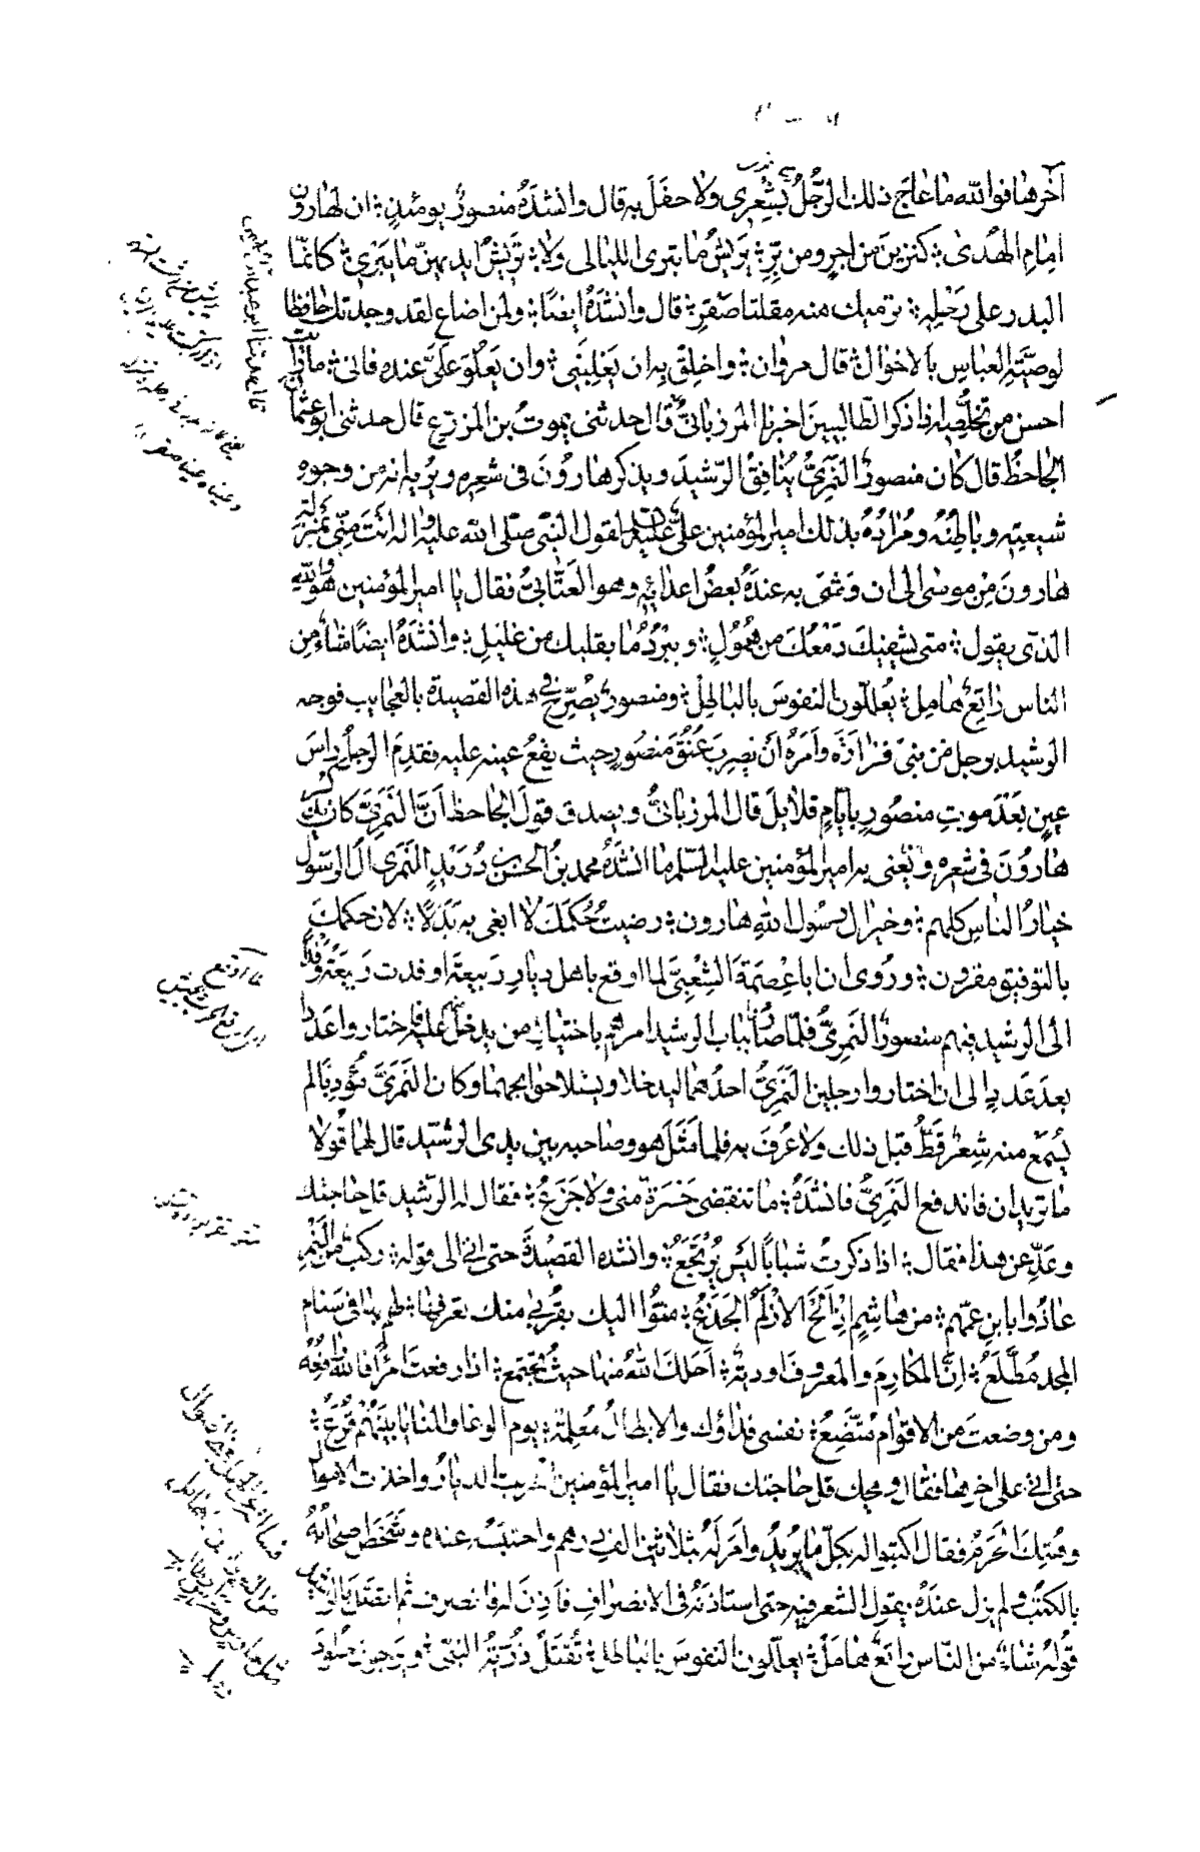 آخرها فوالله ما عاج ذلك الرجل بشعرى ولا حفل به قال وانشده منصور يومئذ ان لهارون
امام الهدى كنزين من اجر ومن بر يريش ما تبرى الليالى ولا تريش ايديهن ما يبرى كانما
البدر على رحله ترميك منه مقلتا صقر قال وانشده ايضا ولمن اضاع لقد وجدتك حافظا
لوصية العباس بالاخوال قال مروان واخلق به ان يغلبنى وان يعلو على عنده فانى ما رأيت
احسن من تخلصه اذا ذكر الطالبيين اخبرنا المرزبانى قال حدثنى يموت بن المزرع قال حدثنى ابو عثمان
الجاحظ قال كان منصور النمرى ينافق الرشيد ويذكر هارون فى شعره ويريه انه من وجوه
شيعته وباطنه ومراده بذلك امير المؤمنين على عليه السلم لقول النبى صلى الله عليه واله انت منى بمنزلة
هارون من موسى الى ان وشى به عنده بعض اعدائه وهو العتابى فقال يا امير المؤمنين هو والله
الذى يقول متى يشفيك دمعك من همول ويبرد ما بقلبك من غليل وانشده ايضا شاء من
الناس راتع هامل يعللون النفوس بالباطل ومنصور يصرح فى هذه القصيدة بالعجايب فوجه
الرشيد برجل من بنى فزارة وامره ان يضرب عنق منصور حيث يقع عينه عليه فقدم الرجل راس
عين بعد موت منصور بايام قلايل قال المرزبانى ويصدق قول الجاحظ ان النمرى كان يذكر
هارون فى شعره ويعنى به امير المؤمنين عليه السلم ما انشده محمد بن الحسن بن دريد النمرى ال الرسول
خيار الناس كلهم وخير ال رسول الله هارون رضيت حكمك لا ابغى به بدلا لان حكمك
بالتوفيق مقرون وروى ان ابا عصمة الشعبى لما اوقع باهل ديار ربيعة اوفدت ربيعة وفدا
الى الرشيد فيهم منصور النمرى فلما صاروا بباب الرشيد امرهم باختيار من يدخل عليه فاختاروا عددا
بعد عدد الى ان اختاروا رجلين النمرى احدهما ليدخلا ويسئلا حوايجهما وكان النمرى مؤدبا لم
يسمع منه شعر قط قبل ذلك ولا عرف به فلما مثل هو وصاحبه بين يدى الرشيد قال لهما قولا
ما تريدان فاندفع النمرى فانشده ما تنقضى حسرة منى ولا جزع فقال له الرشيد قل حاجتك
وعد عن هذا فقال اذا ذكرت شبابا ليس يرتجع وانشده القصيدة حتى اتى الى قوله ركب من النمر
عاذوا بابن عمهم من هاشم اذ الح الازلم الجذع متوا اليك بقربى منك تعرفها لهم بها فى سنام
المجد مطلع ان المكارم والمعروف اودية احلك الله منها حيث تجتمع اذا رفعت امرأ فالله رافعه
ومن وضعت من الاقوام متضع نفسى فداؤك والابطال معلمة يوم الوغا والمنايا بينهم قرع
حتى اتى على اخرها فقال ويحك قل حاجتك فقال يا امير المؤمنين خربت الديار واخذت الاموال
وهتك الحرم فقال اكتبوا له بكل ما يريد وامر له بثلاثين الف درهم واحتبسه عنده وشخص اصحابه
بالكتب ولم يزل عنده يقول الشعر فيه حتى استاذنه فى الانصراف فاذن له فانصرف ثم اتصل بالرشيد
قوله شاء من الناس راتع هامل يعللون النفوس بالباطل تقتل ذرية النبى ويرجون خلود